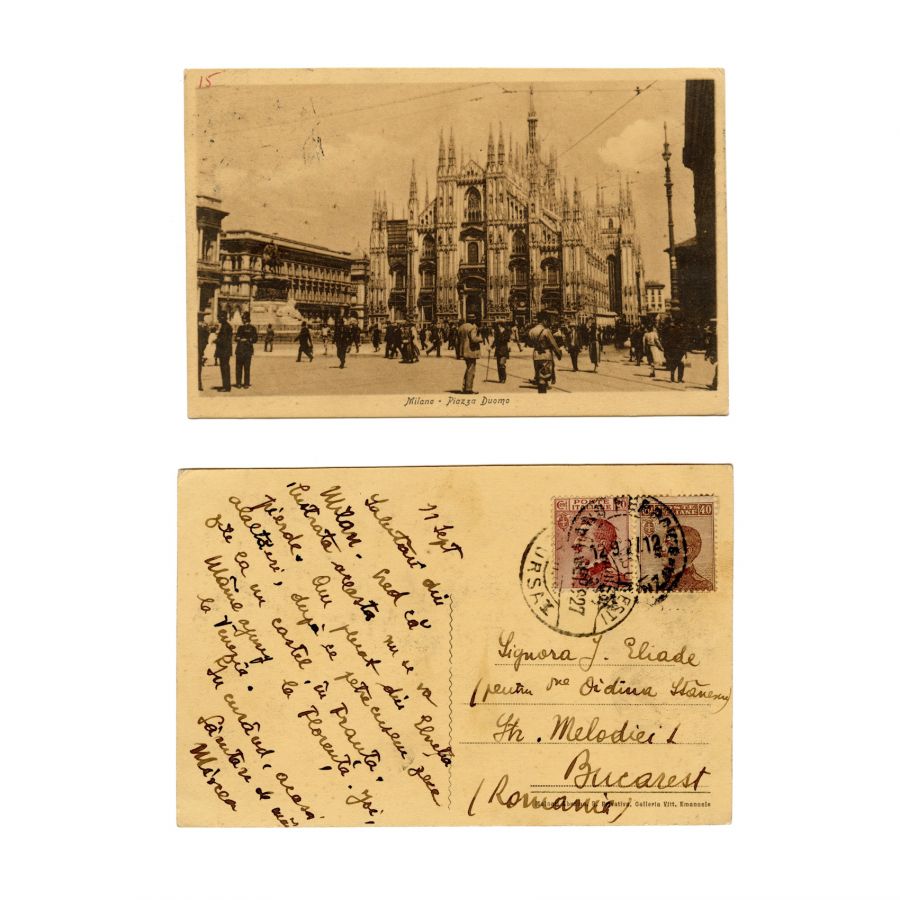 15
Milano - Piazza Duomo
11 Sept
Salutări din
Milan. Cred că
ilustrata aceasta nu se va
pierde. Am plecat din Elveția
alaltăeri, după ce petrecusem zece
zile la un castel, în Franța.
Mâine ajung la Florența. Joi,
la Veneția.
In curând, acasă.
Sărutări de mâini
Mircea
POSTE
ITALIANE
40
12.9.27.12
Signora J. Eliade
(pentru Dna Didina Stănescu)
Str. Melodiei 1
Bucarest
(Romania)
Galleria Vitt. Emanuele